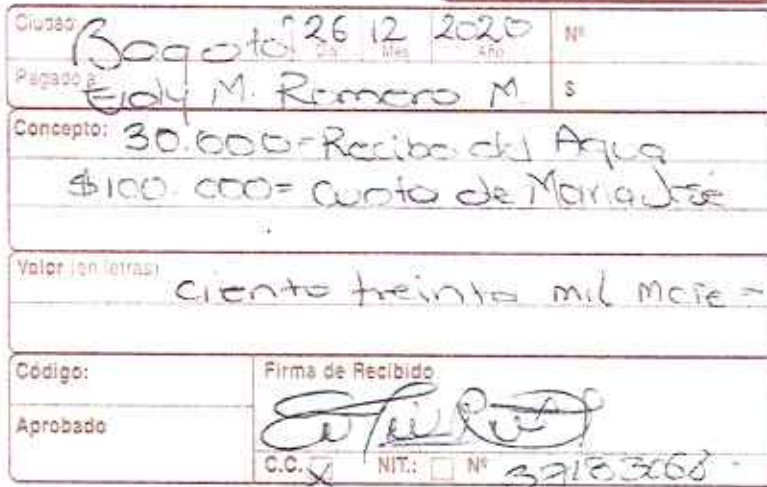 Ciudad: Bogotá 26 12 2020 Nº
Día Mes Año
Pagado a: Eidy M. Romero M. $
Concepto: 30.000= Recibo del Agua
$100.000= Cuota de Maria José
Valor (en letras) Ciento treinta mil mcte=
Código: Firma de Recibido
Aprobado
C.C. X NIT.: Nº